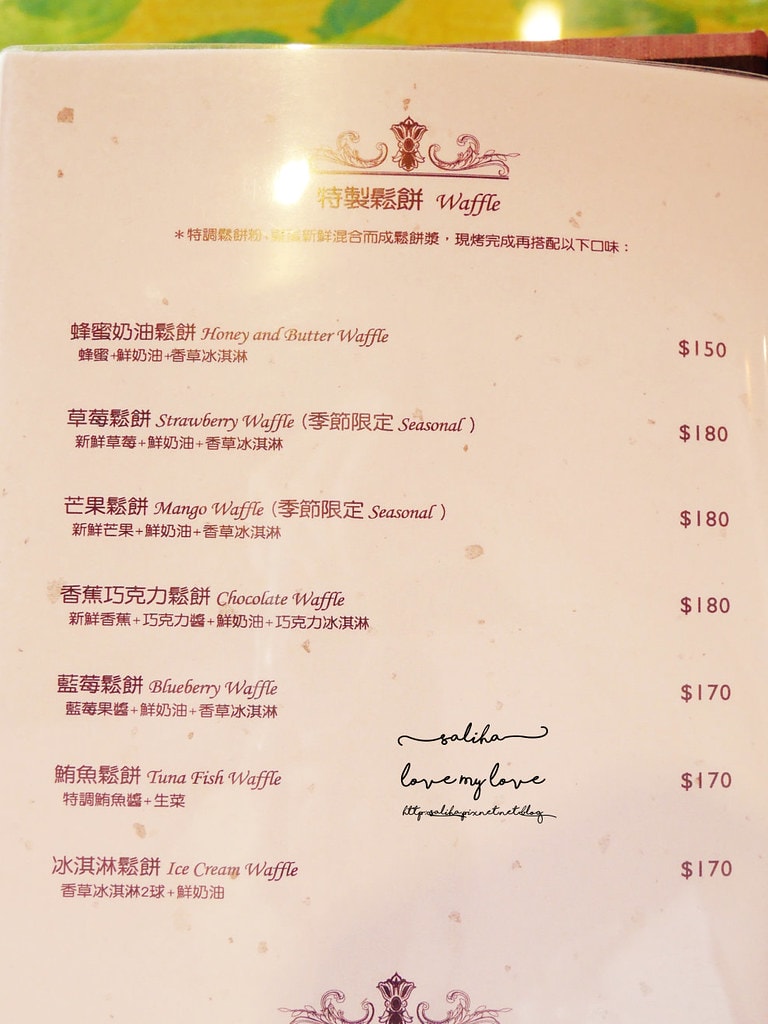 特製鬆餅 Waffle
＊特調鬆餅粉、新鮮混合而成鬆餅漿，現烤完成再搭配以下口味：
蜂蜜奶油鬆餅 Honey and Butter Waffle
蜂蜜+鮮奶油+香草冰淇淋
$150
草莓鬆餅 Strawberry Waffle (季節限定 Seasonal )
新鮮草莓+鮮奶油+香草冰淇淋
$180
芒果鬆餅 Mango Waffle (季節限定 Seasonal )
新鮮芒果+鮮奶油+香草冰淇淋
$180
香蕉巧克力鬆餅 Chocolate Waffle
新鮮香蕉+巧克力醬+鮮奶油+巧克力冰淇淋
$180
藍莓鬆餅 Blueberry Waffle
藍莓果醬+鮮奶油+香草冰淇淋
$170
saliha
love my love
鮪魚鬆餅 Tuna Fish Waffle
特調鮪魚醬+生菜
$170
冰淇淋鬆餅 Ice Cream Waffle
香草冰淇淋2球+鮮奶油
$170